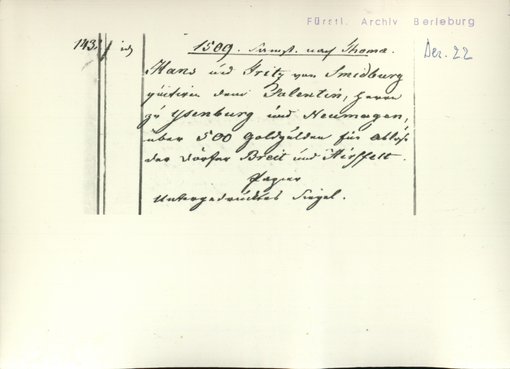 Fürstl. Archiv Berleburg
Dez. 22
143.
1509. Dienst. nach Thoma.
Hans und Fritz von Smidburg
quitiren dem Salentin, Herrn
zu Ysenburg und Neumagen,
über 500 Goldgulden für Ablöse
der Dörfer Breit und Hirffelt.
Papier
Untergedrucktes Siegel.